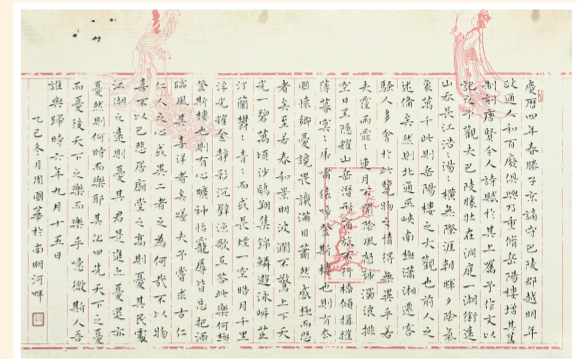 慶曆四年春滕子京謫守巴陵郡越明年
政通人和百廢俱興乃重脩岳陽樓增其舊
制刻唐賢今人詩賦於其上屬予作文以
記之予觀夫巴陵勝狀在洞庭一湖銜遠
山吞長江浩々湯々橫無際涯朝暉夕陰氣
象萬千此則岳陽樓之大觀也前人之
述備矣然則北通巫峽南極瀟湘遷客
騷人多會於此覽物之情得無異乎若
夫霪雨霏々連月不開陰風怒號濁浪排
空日星隱耀山岳潛形商旅不行檣傾楫摧
薄暮冥々虎嘯猿啼登斯樓也則有去
國懷鄉憂讒畏譏滿目蕭然感極而悲
者矣至若春和景明波瀾不驚上下天
光一碧萬頃沙鷗翔集錦鱗游泳岸芷
汀蘭鬱々青々而或長煙一空皓月千里
浮光躍金靜影沉璧漁歌互答此樂何極
登斯樓也則有心曠神怡寵辱皆忘把酒
臨風其喜洋洋者矣嗟夫予嘗求古仁
人之心或異二者之為何哉不以物
喜不以己悲居廟堂之高則憂其民處
江湖之遠則憂其君是進亦憂退亦
憂然則何時而樂耶其必曰先天下之憂
而憂後天下之樂而樂乎噫微斯人吾
誰與歸時六年九月十五日
乙巳冬月周國華於南明河畔